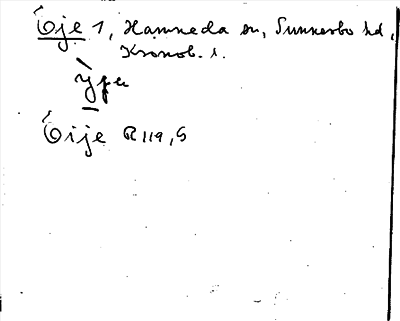 Öje 1, Hamneda sn, Sunnerbo hd,
Kronob. l.
Öije R 119, S